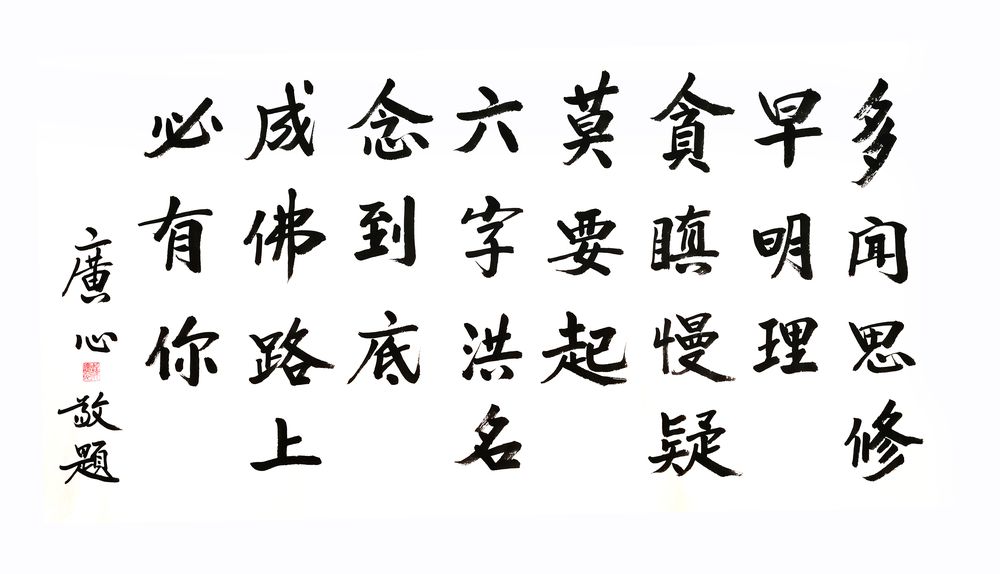 多闻思修
早明理
貪瞋慢疑
莫要起
六字洪名
念到底
成佛路上
必有你
廣心
敬題